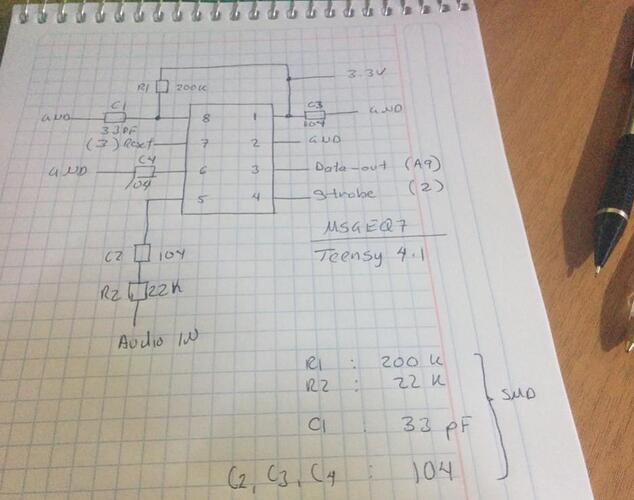 3.3V
R1 200K
C1
C3
GND 8 1 GND
33PF 104
(3) Reset 7 2 GND
C4
GND 6 3 Data-out (A9)
104
5 4 Strobe (2)
MSGEQ7
C2 104
Teensy 4.1
R2 22K
Audio IN
R1 : 200 K
R2 : 22 K
SMD
C1 : 33 pF
C2, C3, C4 : 104